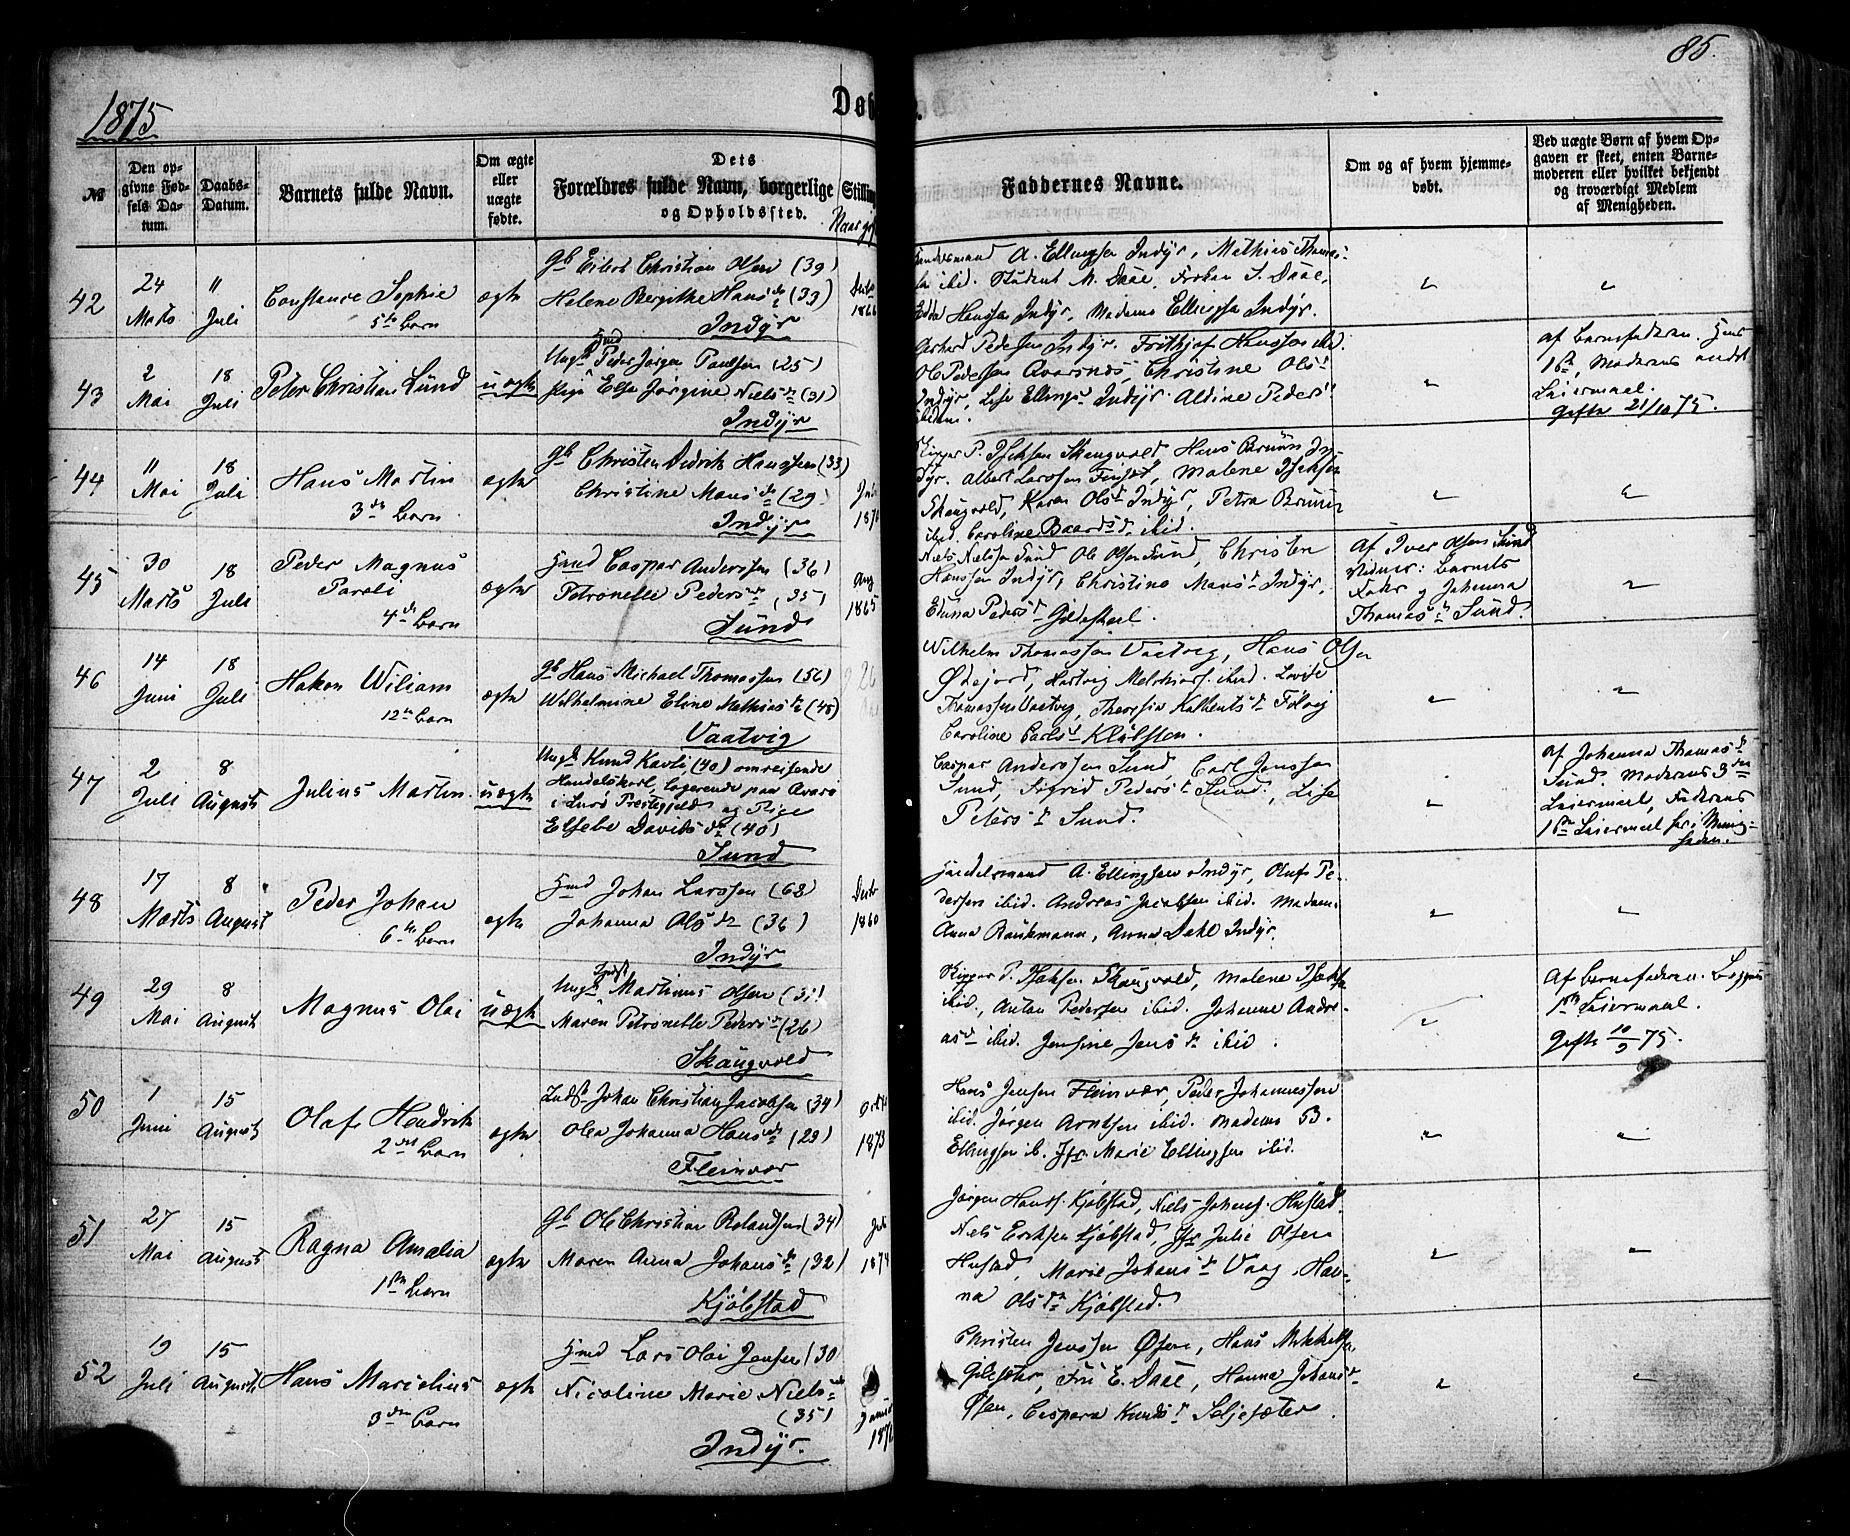 85.
1875
Døb
№
Den opgivne Fødsels Datum.
Daabs-Datum.
Barnets fulde Navn.
Om ægte eller uægte fødte.
Dets Forældres fulde Navn, borgerlige Stilling og Opholdssted.
Naar
Faddernes Navne.
Om og af hvem hjemmedøbt.
Ved uægte Børn af hvem Opgaven er skeet, enten Barnemoderen eller hvilket bekjendt og troværdigt Medlem af Menigheden.
42
24 Marts
11 Juli
Constance Sophie
5te Barn
ægte
Gb Eilert Christian Olsen (39)
Helene Bergithe Hansdr (33)
Indyr
Decbr 1866
A. Ellingsen Indyr, Mathias
ibid. Student M. Daae, Frøken S. Daae,
Hanssen Indyr, Madame Ellingsen Indyr.
"
"
43
2 Mai
18 Juli
Peter Christian Lund
uægte
Ungk Peder Jørgen Paulsen (25)
Pige Else Jørgine Nielsdr (31)
Indyr
Gerhard Pedersen Indyr. Frithjof Hanssen ibid.
Ol Pedersen Qvarsnes, Christine Olsdr
Indyr, Lise Ellingsdr Indyr. Aldine Pedersdr
ibidem.
"
af Barnefaderen. Hans
1ste, Moderens andet
Leiermaal.
Gifte 21/10 75.
44
11 Mai
18 Juli
Hans Martin
3die Barn
ægte
Gb Christen Didrik Hanssen (33)
Christine Mansdr (29)
Indyr
P. Isaksen Skaugvold Hans Bruun
Albert Larssen Finset, Malene Isaksen
Skaugvold, Karen Olsdr Indyr, Petra Bruun
ibid. Caroline Baardsdr ibid.
"
"
45
30 Marts
18 Juli
Peder Magnus
Paroli
4de Barn
ægte
Hmd Caspar Anderssen (36)
Petronelle Pedersdr (35)
Sund
Aug 1865
Niels Nielssen Sund Ole Olsen Sund, Christen
Hanssen Indyr, Christine Mansdr Indyr,
Pedersdr Gildeskaal.
Af Iver Olsen Sund
Vidner: Barnets
Fader og Johanna
Thomasdr Sund.
"
46
14 Juni
18 Juli
Hakon Wiliam
12te Barn
ægte
Gb Hans Michael Thomassen (56)
Wilhelmine Eline Mathiasdr (45)
Vaatvig
Wilhelm Thomassen Vaatvig, Hans Olsen
Øiejord, Hartvig Melchiors. ibid. Lovise
Thomassen Vaatvig,
Caroline Carlsdr
"
"
47
2 Juli
8 August
Julius Martin
uægte
Ungk Knud Kavli, (40) omreisende
Handelskarl, logerende paa Qvarø
i Lurø Prestegjeld og Pige
Elsebe Davidsdr (40)
Sund
Caspar Anderssen Sund, Carl Jenssen
Sund, Sigrid Pedersdr Sund, Lise
Petersdr Sund.
"
af Johanna Thomasdr
Sund. Moderens 3die
Leiermaal, Faderens
1ste Leiermaal her i Menigheden.
48
17 Marts
8 August
Peder Johan
6te Barn
ægte
Hmd Johan Larssen (62)
Johanna Olsdr (36)
Indyr
Decbr 1860
Handelsmand A. Ellingsen Indyr, Oluf Pedersen ibid. Andreas Jacobsen ibid. Madam
Anna Brinkmann, Anna Dahl Indyr.
"
"
49
29 Mai
8 August
Magnus Olai
uægte
Ungk Martinus Olsen (31)
Maren Petronelle Pedersdr (26)
Skaugvold
P. Isaksen Skaugvold, Malene Isaksen
ibid., Anton Pedersen ibid. Johanne Andreasdr ibid. Jensine Jensdr ibid.
"
Af Barnefaderen. Begges
1ste Leiermaal.
Gifte 10/9 75.
50
1 Juni
15 August
Olaf Hendrik
2det Barn
ægte
Indst Johan Christian Jacobsen (34)
Olea Johanna Hansdr (29)
Fleinvær
Octbr 1873
Hans Jensen Fleinvær, Peder Johannessen
ibid. Jørgen Arntsen ibid. Madame B.
Ellingsen ib. Jfr. Marie Ellingsen ibid.
"
"
51
27 Mai
15 August
Ragna Amalia
1ste Barn
ægte
Gb Ole Christian Rolandsen (34)
Maren Anna Johansdr (32)
Kjøbstad
Juli 1874
Jørgen Hanss. Kjøbstad, Niels Johans. Hustad,
Niels Eriksen Kjøbstad, Jfr. Julie Olsen
Hustad, Marie Johansdr Vaag, Hanna Olsdr Kjøbstad.
"
"
52
19 Juli
15 August
Hans Marselius
3die Barn
ægte
Hmd Lars Olai Jensen (30
Nicoline Marie Nielsdr
(35)
Indyr.
Christen Jenssen Øsen, Hans Mikkelsen
Gilesæter, Fru E. Daae, Hanna Johansdr
Øsen, Caspara Knudsdr Seljesæter
"
"